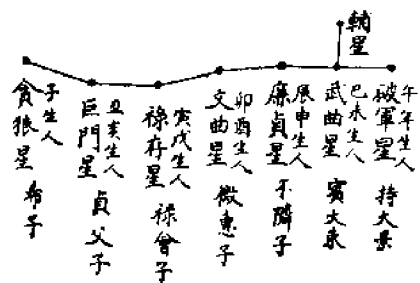 輔星
午年生人
破軍星 持大景
巳未生人
武曲星 賓大東
辰申生人
廉貞星 不隣子
卯酉生人
文曲星 微惠子
寅戌生人
祿存星 祿會子
丑亥生人
巨門星 貞父子
子生人
貪狼星 希子